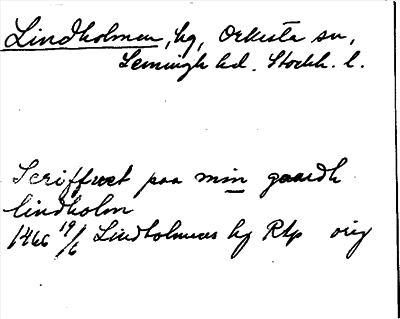 Lindholmen, hg, Orkesta sn,
Seminghs hd. Stockh. l.
Scriffuet paa min gaardh
lindholm
1466 19/6 Lindholmens hg Rtp orig